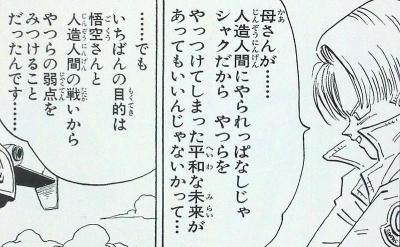 母さんが………
人造人間にやられっぱなしじゃ
シャクだから やつらを
やっつけてしまった平和な未来が
あってもいいんじゃないかって…
……でも
いちばんの目的は
悟空さんと
人造人間の戦いから
やつらの弱点を
みつけること
だったんです……